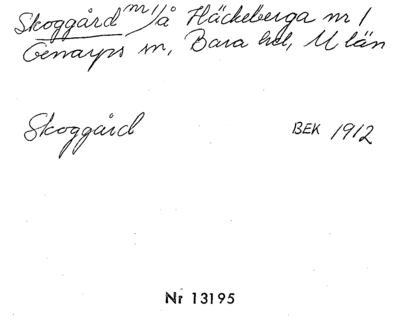 Skoggård nr 1 å Häckeberga nr 1
Genarps sn, Bara hd, M län
Skoggård BEK 1912
Nr 13195